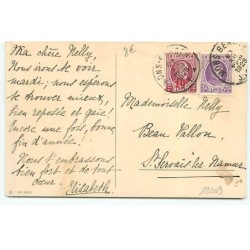 Ma chère Nelly,
Nous irons te voir
mardi; nous espérons
te trouver mieux,
bien reposée et gaie!
Encore une fois, bonne
fin d'année!
Nous t'embrassons
bien fort et de tout
cœur.
Elisabeth
Mademoiselle Nelly
Beau Vallon
St Servais lez Namur